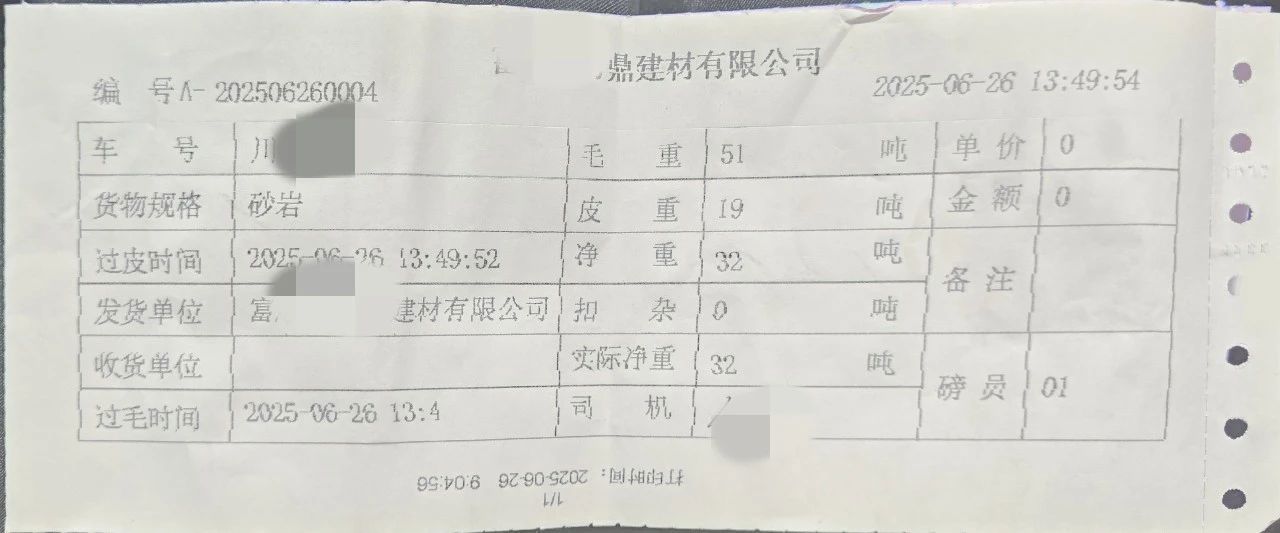 鼎建材有限公司
编 号A-202506260004 2025-06-26 13:49:54
车 号 川 毛 重 51 吨 单 价 0
货物规格 砂岩 皮 重 19 吨 金 额 0
过皮时间 2025-06-26 13:49:52 净 重 32 吨 备 注
发货单位 富 建材有限公司 扣 杂 0 吨
收货单位 实际净重 32 吨 磅 员 01
过毛时间 2025-06-26 13:4 司 机
打印时间：2025-06-26 9:04:56
1/1